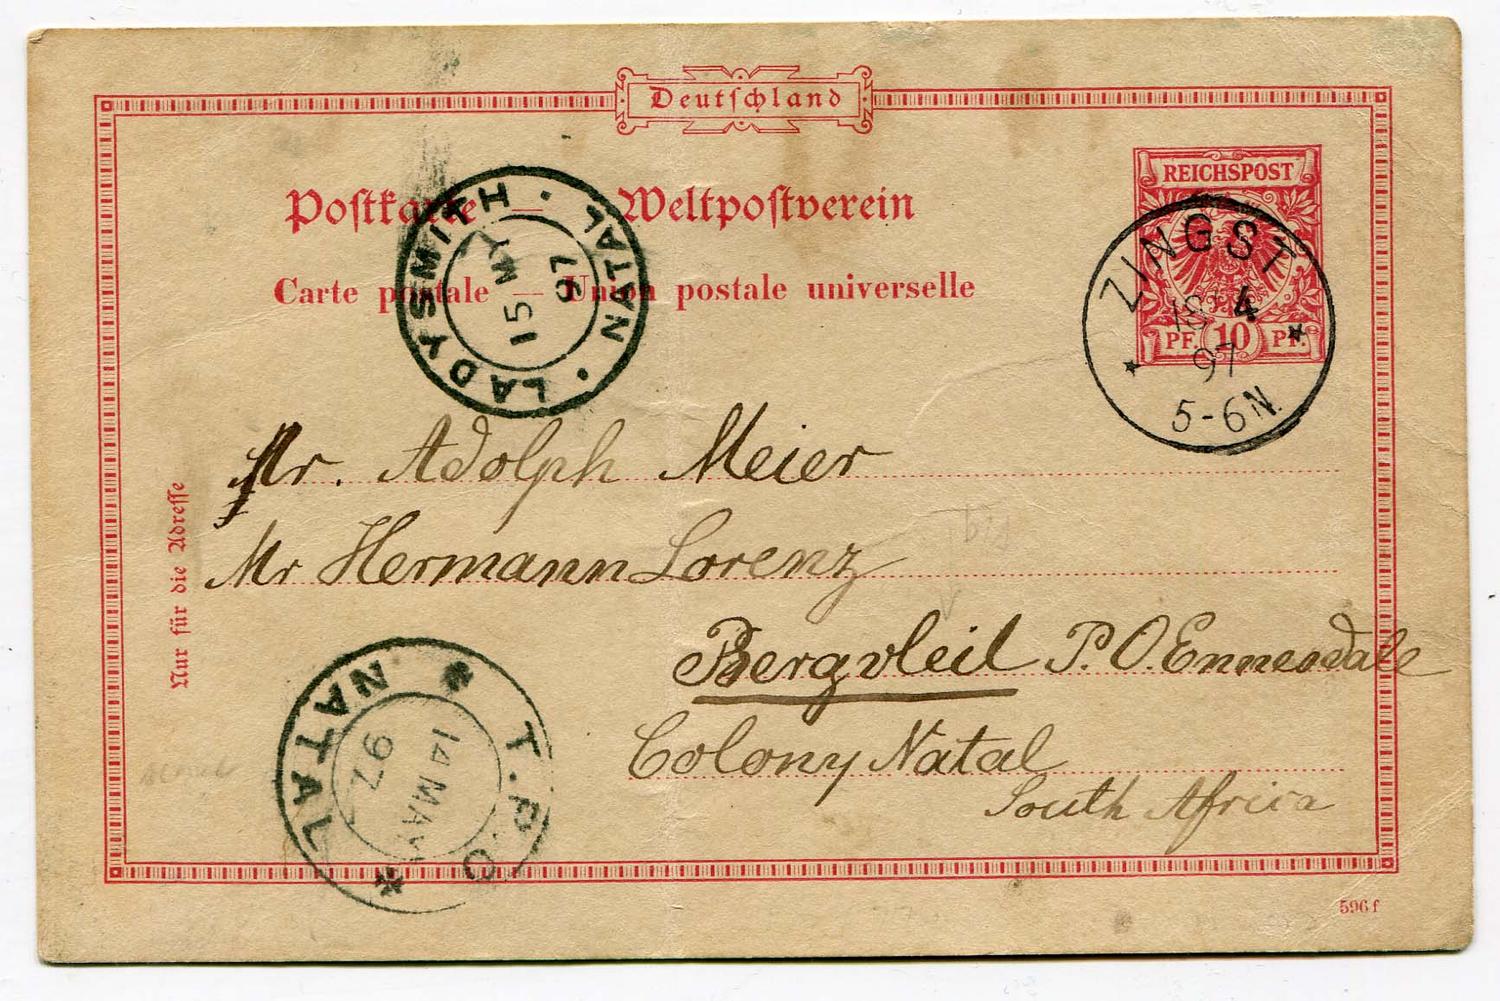 Deutschland
REICHSPOST
PF. 10 PF.
Postkarte — Weltpostverein
Carte postale — Union postale universelle
ZINGST
18 4
97
5-6N.
LADYSMITH · NATAL ·
15 MY
97
Mr. Adolph Meier
Mr Hermann Lorenz
Bergvleil P.O. Ennesdale
Colony Natal
South Africa
Nur für die Adresse
T.P.O NATAL
14 MAY
97
596 f